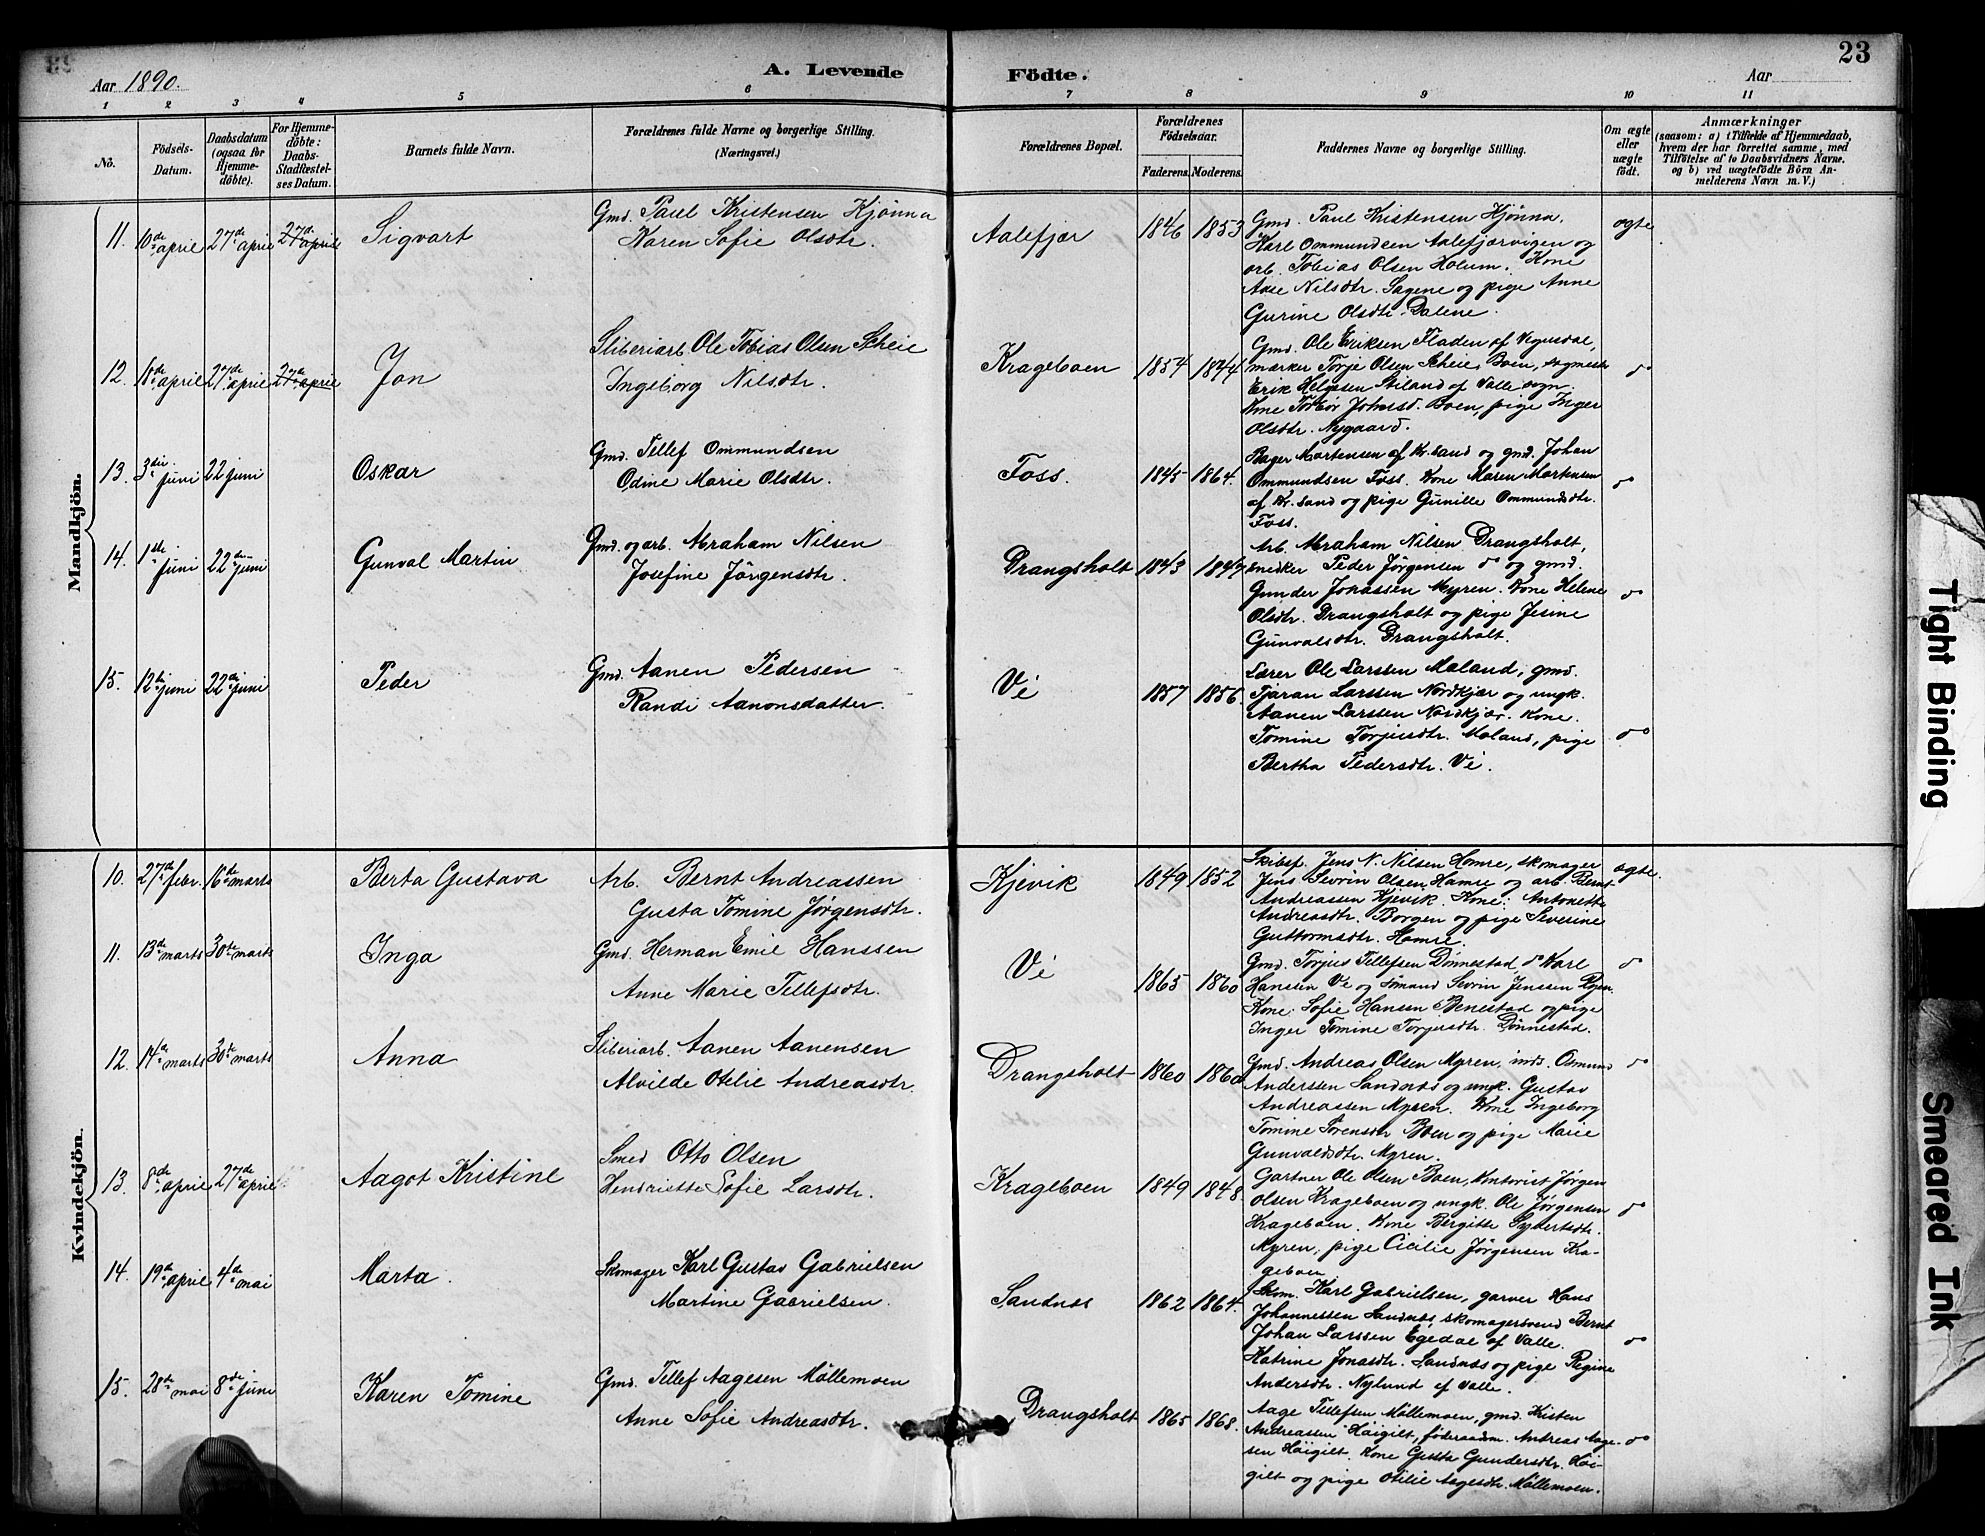 23
Aar 1890. A. Levende Födte. Aar
1 2 3 4 5 6 7 8 9 10 11
No.
Födsels-
Datum.
Daabsdatum
(ogsaa for
Hjemme-
döbte).
For Hjemme-
döbte:
Daabs-
Stadfæstel-
ses Datum.
Barnets fulde Navn.
Forældrenes fulde Navne og borgerlige Stilling.
(Næringsvei.)
Forældrenes Bopæl.
Forældrenes
Födselsaar.
Faderens. Moderens.
Faddernes Navne og borgerlige Stilling.
Om ægte
eller
uægte
födt.
Anmærkninger
(saasom: a) i Tilfælde af Hjemmedaab,
hvem der har forrettet samme, med
Tilföielse af to Daabsvidners Navne,
og b) ved uægtefödte Börn An-
melderens Navn m. V.)
Mandkjön.
11. 10de april 27de april 27de april Sigvart
Gmd. Paul Kristensen Kjønna
Karen Sofie Olsdtr.
Aalefjær 1846 1853
Gmd. Paul Kristensen Kjønna,
Karl Ommundsen Aalefjærvigen og
arb. Tobias Olsen Holum. Kone
Aase Nilsdtr. Sagene og pige Anne
Gurine Olsdtr. Dalene.
ægte
12. 18de april 27de april 27de april Jon
Sliberiarb. Ole Tobias Olsen Scheie
Ingeborg Nilsdtr.
Krageboen 1854 1844
Gmd. Ole Eriksen Fladen af Vegusdal,
mærker Torje Olsen Scheie, Boen, sagmester
Erik Helgesen Stiland af Valle sogn.
Kone Torbør Johnsd. Boen, pige Inger
Olsdtr. Nygaard.
do
13. 3die juni 22 juni Oskar
Gmd. Tellef Ommundsen
Odine Marie Olsdtr.
Foss. 1845 1864.
Bager Mortensen af Kr.sand og gmd. Johan
Ommundsen Foss. Kone Maren Mortensen
af Kr.sand og pige Gunille Ommundsdtr.
Foss.
do
14. 1ste juni 22de juni Gunval Martin
Gmd. og arb. Abraham Nilsen
Josefine Jörgensdtr.
Drangsholt 1843 1847
Arb. Abraham Nilsen Drangsholt,
snedker Peder Jörgensen do og gmd.
Gunder Jonassen Myren. Kone Helene
Olsdtr. Drangsholt og pige Jesine
Gunvalsdtr. Drangsholt.
do
15. 12te juni 22de juni Peder
Gmd. Aanen Pedersen
Randi Aanonsdatter.
Vé 1857 1856.
Lærer Ole Larssen Moland, gmd.
Tjøran Larssen Nordkjær og ungk.
Aanen Larssen Nordkjær. Kone.
Tomine Torjusdtr. Moland, pige
Bertha Pedersdtr. Vé.
do
Kvindekjön.
10. 27de febr. 16de marts Berta Gustava
Arb. Bernt Andreassen
Gusta Tomine Jørgensdtr.
Kjevik 1849 1852
Skibsf. Jens N. Nilsen Hamre, skomager
Jens Sevrin Olsen Hamre og arb. Bernt
Andreassen Kjevik. Kone: Antonette
Andreasdtr. Borgen og pige Severine
Guttormsdtr. Hamre.
ægte.
11. 13de marts 30te marts Inga
Gmd. Herman Emil Hanssen
Anne Marie Tellefsdtr.
Vé 1865 1860
Gmd. Torjus Tellefsen Dönnestad, do Karl
Hanssen Vé og sømand Sevrin Jenssen Ryen.
Kone: Sofie Hansen Benestad og pige
Inger Tomine Torjusdtr. Dønnestad.
do
12. 14de marts 30te marts Anna
Sliberiarb. Aanen Aanensen
Alvilde Otilie Andreasdtr.
Drangsholt 1860 1860
Gmd. Andreas Olsen Myren, inds. Osmund
Anderssen Sandnæs og ungk. Gustav
Andreassen Myren. Kone Ingeborg
Tomine Sørensdtr Boen og pige Marie
Gunvaldsdtr. Myren.
do
13. 8de april 27de april Aagot Kristine
Smed Otto Olsen
Hendriette Sofie Larsdtr.
Krageboen 1849 1848.
Gartner Ole Olsen Boen, Kontorist Jørgen
Olsen Krageboen og ungk. Ole Jørgensen
Krageboen. Kone Bergitte Syvertsdtr.
Myren, pige Cicilie Jørgensen Kra-
geboen
do
14. 19de april 4de mai Marta.
Skomager Karl Gustav Gabrielsen
Martine Gabrielsen.
Sandnæs 1862 1864.
Skom. Karl Gabrielsen, garver Hans
Johannessen Sandnæs, skomagersvend Bernt
Johan Larssen Egedal af Valle.
Katrine Jonasdtr. Sandnæs og pige Regine
Andersdtr. Nylund af Valle.
do
15. 28de mai 8de juni Karen Tomine
Gmd. Tellef Aagesen Möllemoen
Anne Sofie Andreasdtr.
Drangsholt 1865 1868.
Aage Tellefsen Möllemoen, gmd. Kristen
Andreassen Höigilt, føderaadsm. Andreas Aage-
sen Höigilt. Kone Gusta Gundersdtr. Höi-
gilt og pige Otilie Aagesdtr. Möllemoen.
do
Tight Binding
Smeared Ink